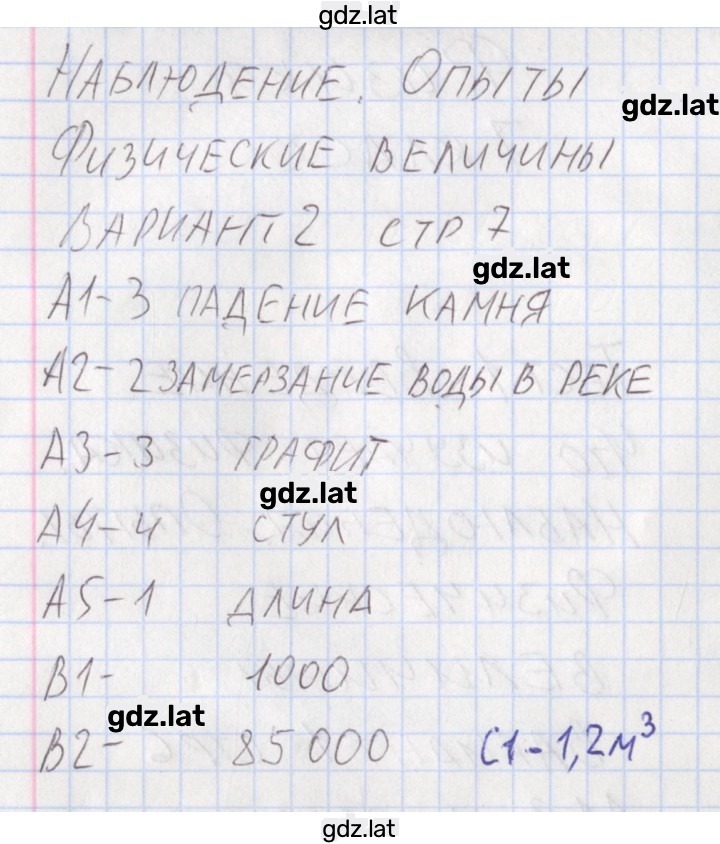 gdz.lat
НАБЛЮДЕНИЕ. ОПЫТЫ
gdz.lat
ФИЗИЧЕСКИЕ ВЕЛИЧИНЫ
ВАРИАНТ 2 СТР 7
gdz.lat
А1-3 ПАДЕНИЕ КАМНЯ
А2-2 ЗАМЕРЗАНИЕ ВОДЫ В РЕКЕ
А3-3 ГРАФИТ
gdz.lat
А4-4 СТУЛ
А5-1 ДЛИНА
В1- 1000
gdz.lat
В2- 85000 С1-1,2м³
gdz.lat